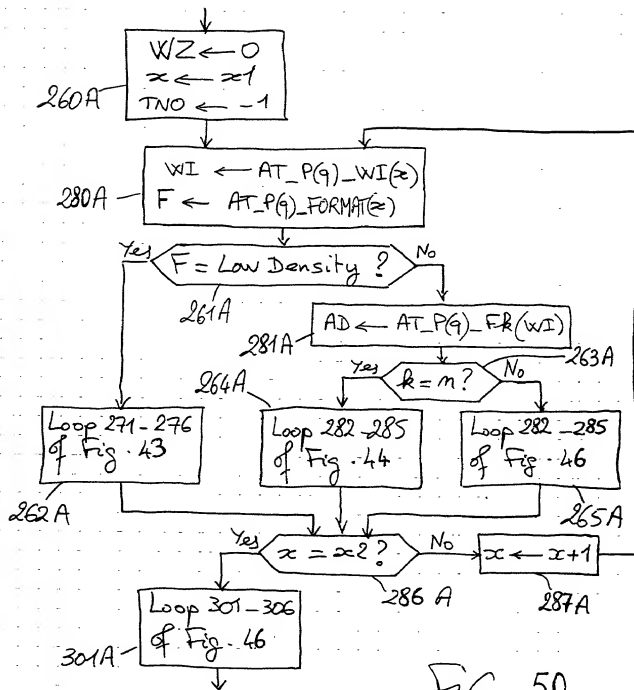 WZ ← 0
x ← x1
TNO ← -1
260A
WI ← AT_P(q)_WI(x)
F ← AT_P(q)_FORMAT(x)
280A
Yes
F = Low Density ?
No
261A
AD ← AT_P(q)_Fk(WI)
281A
263A
Yes
k = n ?
No
264A
Loop 271-276
of Fig. 43
Loop 282-285
of Fig. 44
Loop 282-285
of Fig. 46
262A
265A
Yes
x = x2 ?
No
x ← x+1
286A
287A
Loop 301-306
of Fig. 46
301A
FIG. 50